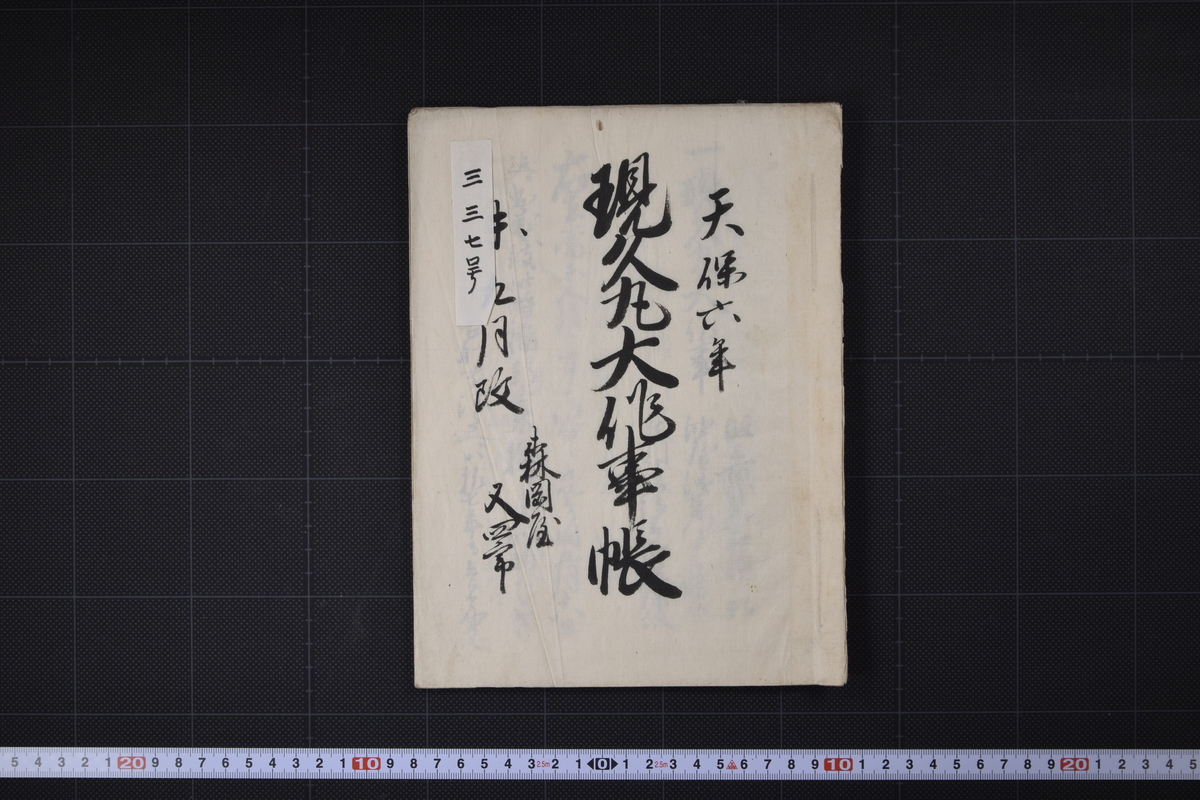 天保六年
現久丸大作事帳
未
月改
森岡屋
又四
三三七号
5 4 3 2 1 20 9 8 7 6 5 4 3 2 1 10 9 8 7 6 5 4 3 2.5m 2 1 0 1 2 2.5m 3 4 5 6 7 8 9 10 1 2 3 4 5 6 7 8 9 20 1 2 3 4 5